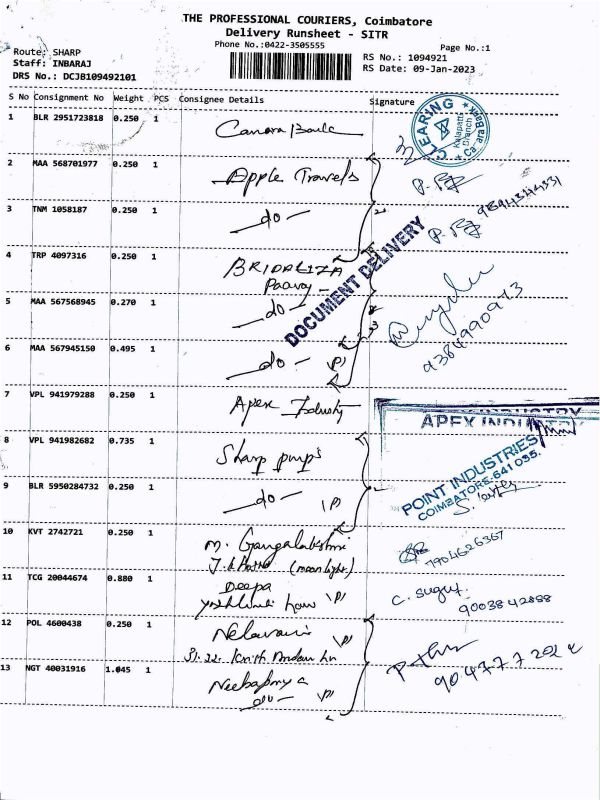 THE PROFESSIONAL COURIERS, Coimbatore
Delivery Runsheet - SITR
Phone No.:0422-3505555
Page No.:1
Route: SHARP
RS No.: 1094921
Staff: INBARAJ
RS Date: 09-Jan-2023
DRS No.: DCJB109492101
S No Consignment No Weight PCS Consignee Details Signature
1 BLR 2951723818 0.250 1 Canara Bank
CLEARING
2 MAA 568701977 0.250 1 Apple Travels
3 TNM 1058187 0.250 1 - do -
DOCUMENT DELIVERY
4 TRP 4097316 0.250 1
5 MAA 567568945 0.270 1 - do -
9384990973
6 MAA 567945150 0.495 1 - do -
7 VPL 941979288 0.250 1 Apex Industry
APEX INDUSTRY
8 VPL 941982682 0.735 1 Sharp pumps
POINT INDUSTRIES
COIMBATORE-641 035.
9 BLR 5950284732 0.250 1 - do -
10 KVT 2742721 0.250 1 M. Gangalakshmi
(moon light)
7904626367
11 TCG 20044674 0.880 1 Deepa
C. Sugu
12 POL 4600438 0.250 1
13 NGT 40031916 1.045 1
- do -